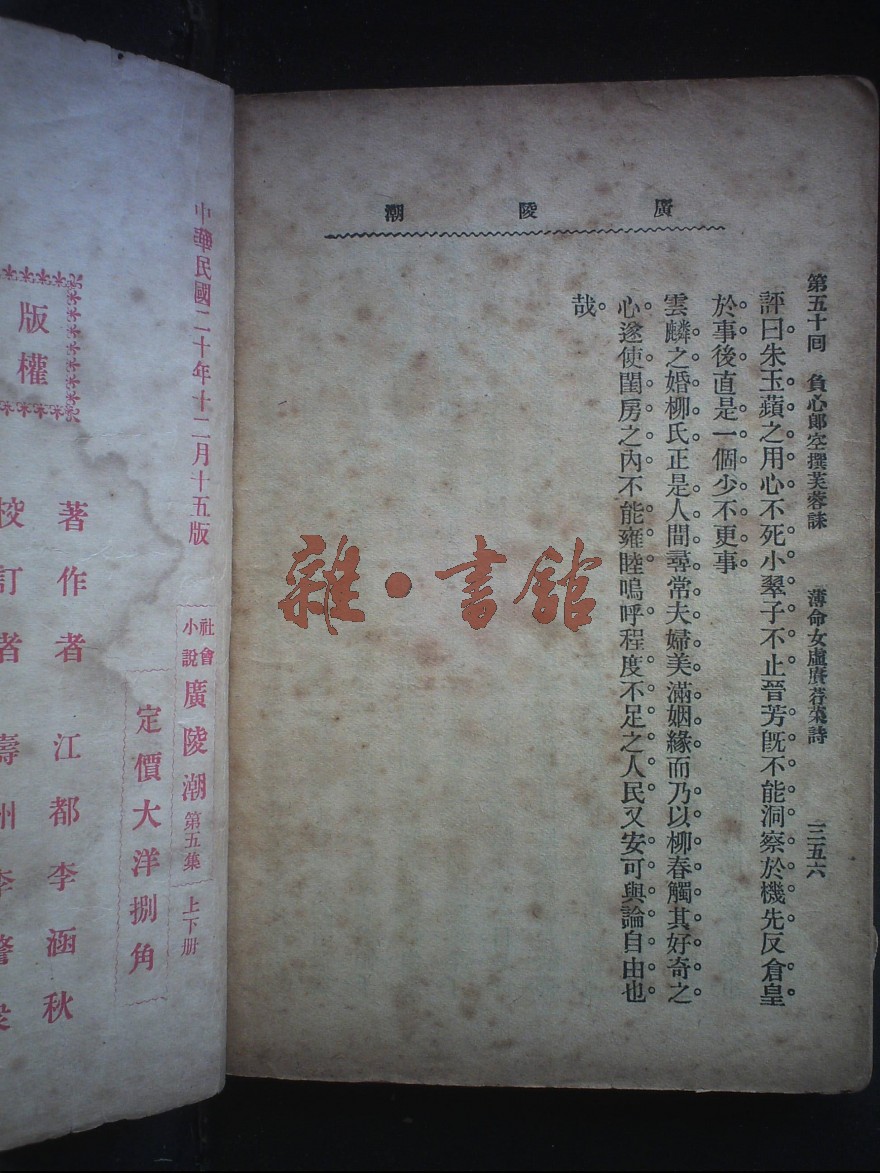 廣陵潮
第五十回 負心郎空撰芙蓉誄 薄命女虛賡芣苡詩 三五六
評曰朱玉蘋之用心不死小翠子不止晉芳旣不能洞察於機先反倉皇
於事後直是一個少不更事
雲麟之婚柳氏正是人間尋常夫婦美滿姻緣而乃以柳春觸其好奇之
心遂使閨房之內不能雍睦嗚呼程度不足之人民又安可與論自由也
哉
雜·書館
中華民國二十年十二月十五版
社會小說 廣陵潮 第五集 上下册
定價大洋捌角
版權
著作者 江都李涵秋
校訂者 壽州李警眾